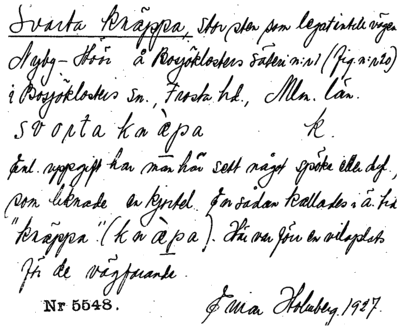 Svarta Knäppa, stor sten som legat intill vägen
Nyby-Höör å Bosjöklosters säteri n:r 1 (fig. n:r 20)
i Bosjöklosters sn., Frosta hd., Mlm. län.
svorta knäpa k.
Enl. uppgift har man här sett något spöke eller dyl.,
som liknade en kjortel. En sådan kallades i ä. tid
"knäppa". (knäpa). Här var förr en viloplats
för de vägfarande.
Nr 5548. Einar Holmberg. 1927.